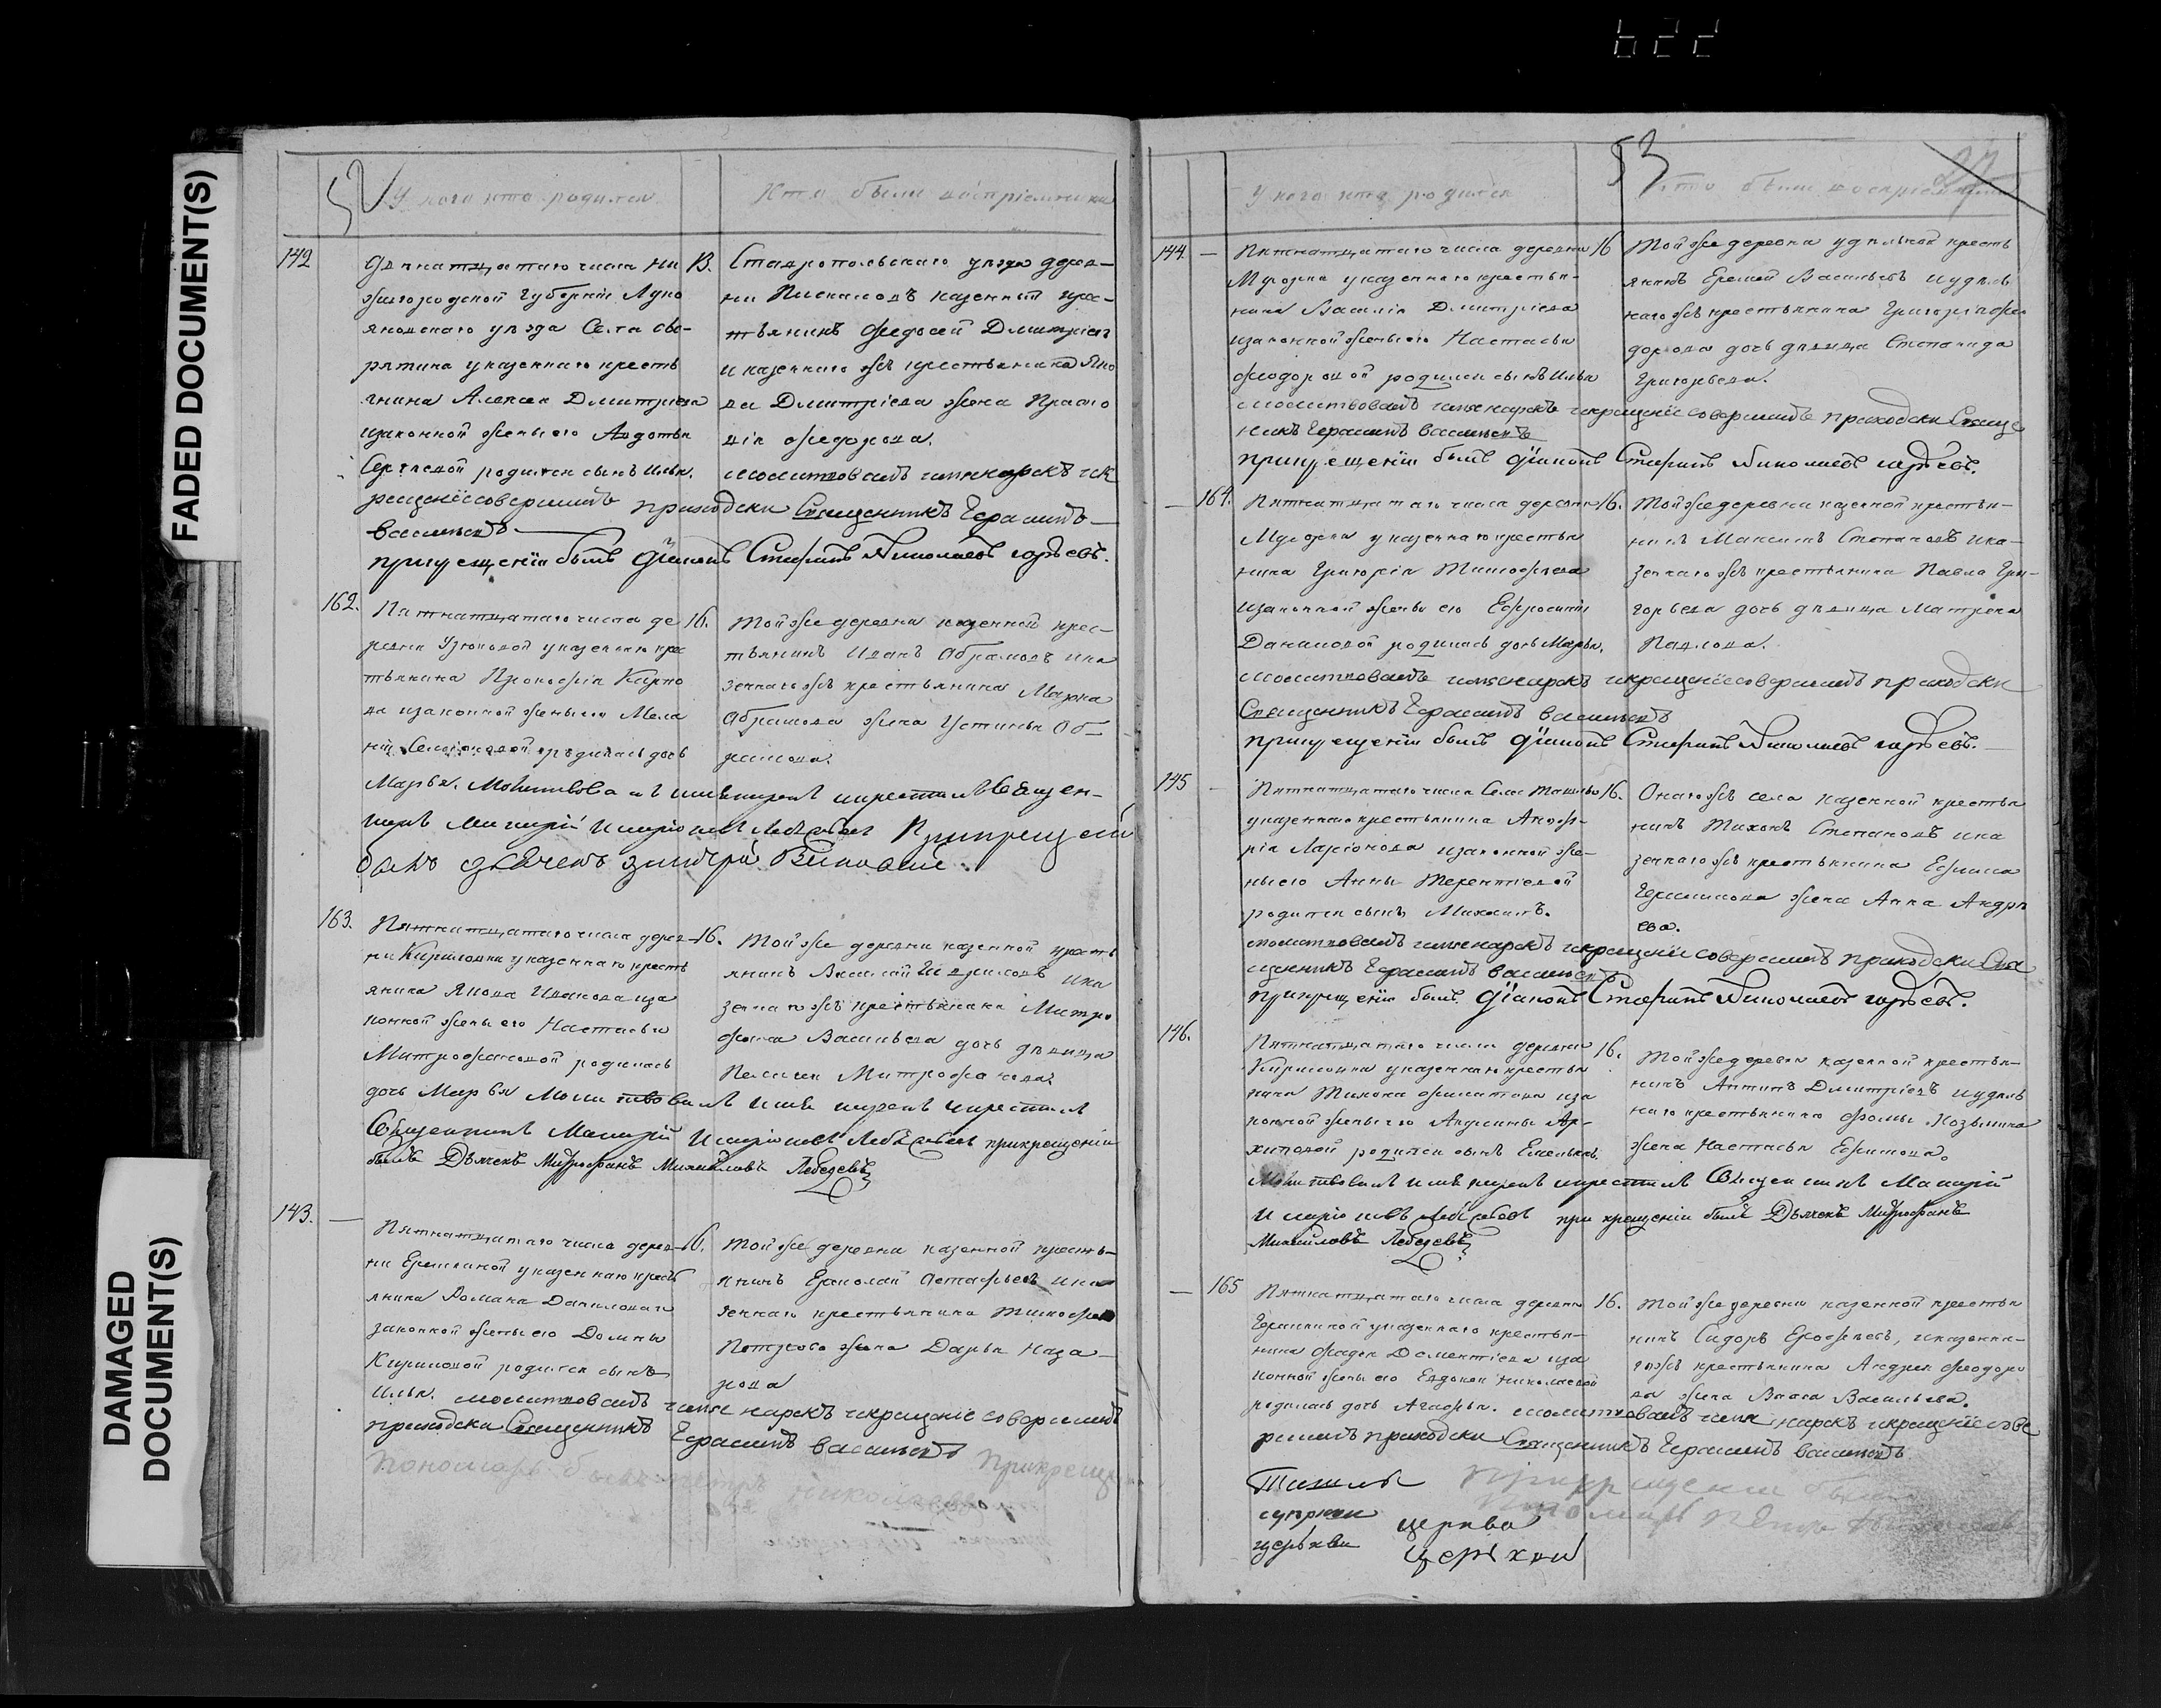 622
FADED DOCUMENT(S)
DAMAGED
DOCUMENT(S)
52
У кого кто родился
Кто были воспріемники
142
Одінатцатаго числа Ни
жегородской Губерніи Луко
яновскаго уезда Села
указеннаго кресть
янина Алексея Дмитриева
изаконной жены его Авдотьи
Сергеевой родился сынъ Илья.
13.
Ставропольскаго уезда дерев-
ни Пискаловъ казенный крес-
тьянинъ Федосей Дмитриевъ
и казеннаго жъ крестьянина Яко
ва Дмитріева жена Праско
вія Федорова.
молитвовалъ имя нарекъ и к
рещеніе совершилъ приходски Священникъ Герасимъ
Васильевъ
при крещеніи былъ Діаконъ Стефанъ Николаевъ
162.
Пятнатцатаго числа де
ревни Узюковой у казеннаго крес
тьянина Прокофія Карпо
ва изаконной жены его Мела
ніи Семіоновой родилась дочь
Марья.
16.
Той же деревни казенной крес-
тьянинъ Иванъ Абрамовъ ика
зеннаго жъ крестьянина Марка
Абрамова жена Устинья Аб
рамова.
Молитвовалъ имя нарекъ и крестилъ Священ-
никъ Макарій Иларіоновъ Лебедевъ При крещеніи
былъ дьячекъ
163.
Пятнатцатаго числа дерев
ни Кириловки у казеннаго кресть
янина Якова Иванова иза
конной жены его Настасьи
Митрофановой родилась
дочь Марья
16.
Той же деревни казенной кресть
янинъ Василій Гавриловъ ика
зеннаго жъ крестьянина Митро
фана Васильева дочь девица
Пелагея Митрофанова
Молитвовалъ имя нарекъ и крестилъ
Священникъ Макарій Иларіоновъ Лебедевъ при крещеніи
былъ Дьячекъ Митрофанъ Михайловъ Лебедевъ
143.
Пятнатцатаго числа дерев
ни Еремкиной у казеннаго кресть
янина Романа Данилова и
законной жены его Домны
Кириловой родился сынъ
Илья.
16.
Той же деревни казенной кресть-
янинъ Ермолай Астафьевъ ика
зеннаго крестьянина Тимофея
Петрова жена Дарья Наза-
рова
молитвовалъ имя нарекъ и крещеніе совершилъ
приходски Священникъ Герасимъ Васильевъ
При крещеніи
пономарь былъ Петръ Николаевъ
53
27
У кого кто родился
Кто были воспріемники
144
Пятнатцатаго числа деревни
Мусорки у казеннаго крестья-
нина Василія Дмитріева
изаконной жены его Настасьи
Феодоровой родился сынъ Илья
16
Той же деревни удельной кресть
янинъ Еремей Васильевъ и удель
наго жъ крестьянина Григорія Фео
дорова дочь девица Степанида
Григорьева.
молитвовалъ имя нарекъ и крещеніе совершилъ приходски Свяще
никъ Герасимъ Васильевъ
при крещеніи былъ Діаконъ Стефанъ Николаевъ
164.
Пятнатцатаго числа деревни
Мусорки у казеннаго крестья
нина Григорія Тимофеева
изаконной жены его Ефросиніи
Даниловой родилась дочь Марья.
16.
Той же деревни казенной крестья-
нинъ Максимъ Степановъ ика-
зеннаго жъ крестьянина Павла Гри-
горьева дочь девица Матрена
Павлова.
молитвовалъ имя нарекъ и крещеніе совершилъ приходски
Священникъ Герасимъ Васильевъ
при крещеніи былъ Діаконъ Стефанъ Николаевъ
145
Пятнатцатаго числа Села Ташлы
у казеннаго крестьянина
Ларіонова изаконной же-
ны его Анны Терентіевой
родился сынъ Михаилъ.
16.
Онаго жъ села казенной крестья
нинъ Тихонъ Степановъ ика
зеннаго жъ крестьянина Ефима
Герасимова жена Анна Андре
ева.
молитвовалъ имя нарекъ и крещеніе совершилъ приходски Свя
щенникъ Герасимъ Васильевъ
при крещеніи былъ Діаконъ Стефанъ Николаевъ
146.
Пятнатцатаго числа деревни
Кириловки у казеннаго крестья
нина Тихона Филатова иза
конной жены его Акулины Ар-
хиповой родился сынъ Емельянъ.
16.
Той же деревни казенной крестья-
нинъ Антипъ Дмитріевъ и удель
наго крестьянина Фомы Козьмина
жена Настасья Ефимова.
Молитвовалъ имя нарекъ и крестилъ Священникъ Макарій
Иларіоновъ Лебедевъ при крещеніи былъ Дьячекъ Митрофанъ
Михайловъ Лебедевъ
165
Пятнатцатаго числа деревни
Еремкиной у казеннаго крестья-
нина Фадея Дементіева иза
конной жены его Евдокеи Николаевой
родилась дочь Агафья.
16.
Той же деревни казенной крестья
нинъ Сидоръ Ерофеевъ, и казенна-
го жъ крестьянина Андрея Феодоро
ва жена Васса Васильева.
молитвовалъ имя нарекъ и крещеніе сове
ршилъ приходски Священникъ Герасимъ Васильевъ
При крещеніи былъ
пономарь Петръ Николаевъ
церкви
церкви
церкви